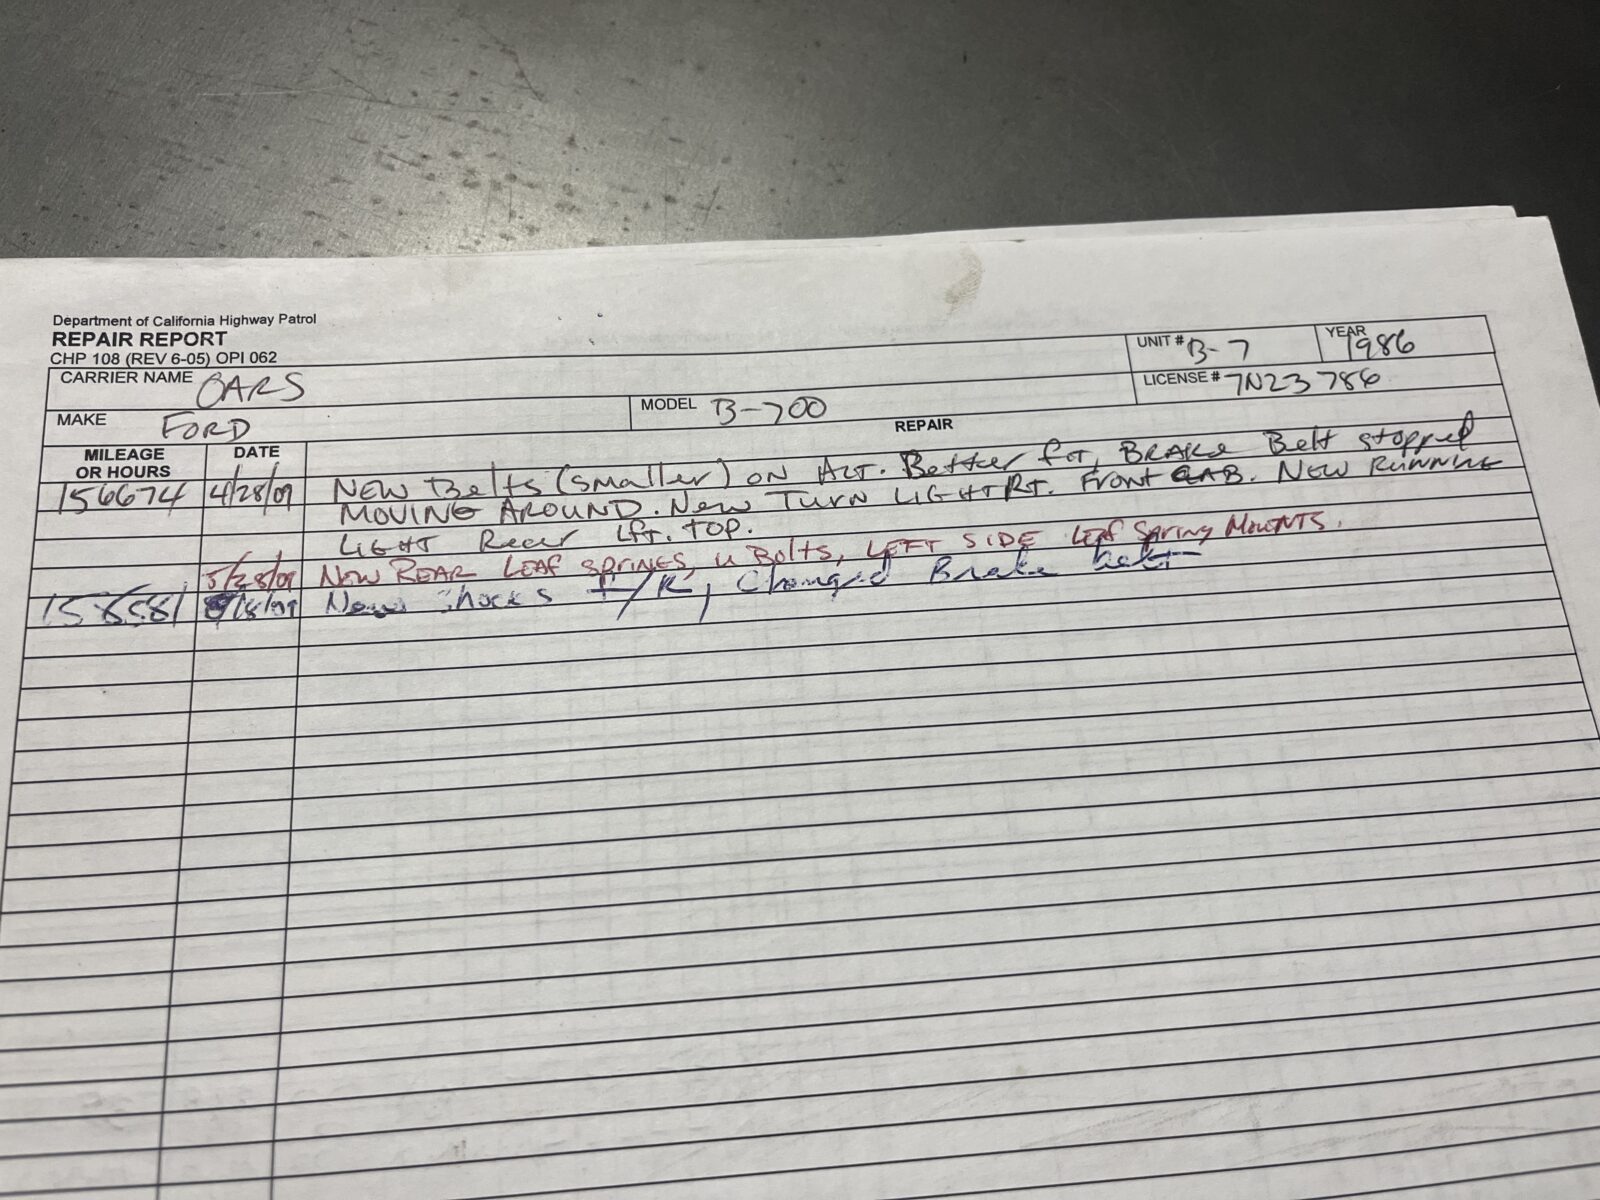 Department of California Highway Patrol
REPAIR REPORT
CHP 108 (REV 6-05) OPI 062
UNIT # B-7 YEAR 1986
CARRIER NAME OARS
LICENSE # 7N23786
MAKE FORD MODEL B-700
REPAIR
MILEAGE OR HOURS DATE
156674 4/28/09 NEW Belts (smaller) ON ALT. Better fit, BRAKE Belt stopped
MOVING AROUND. New TURN LIGHT RT. Front CAB. NEW RUNNING
LIGHT Rear Lft. TOP.
5/28/09 NEW REAR LEAF SPRINGS, U Bolts, LEFT SIDE Leaf Spring MOUNTS.
158581 /18/09 New Shocks F/R, Changed Brake belt